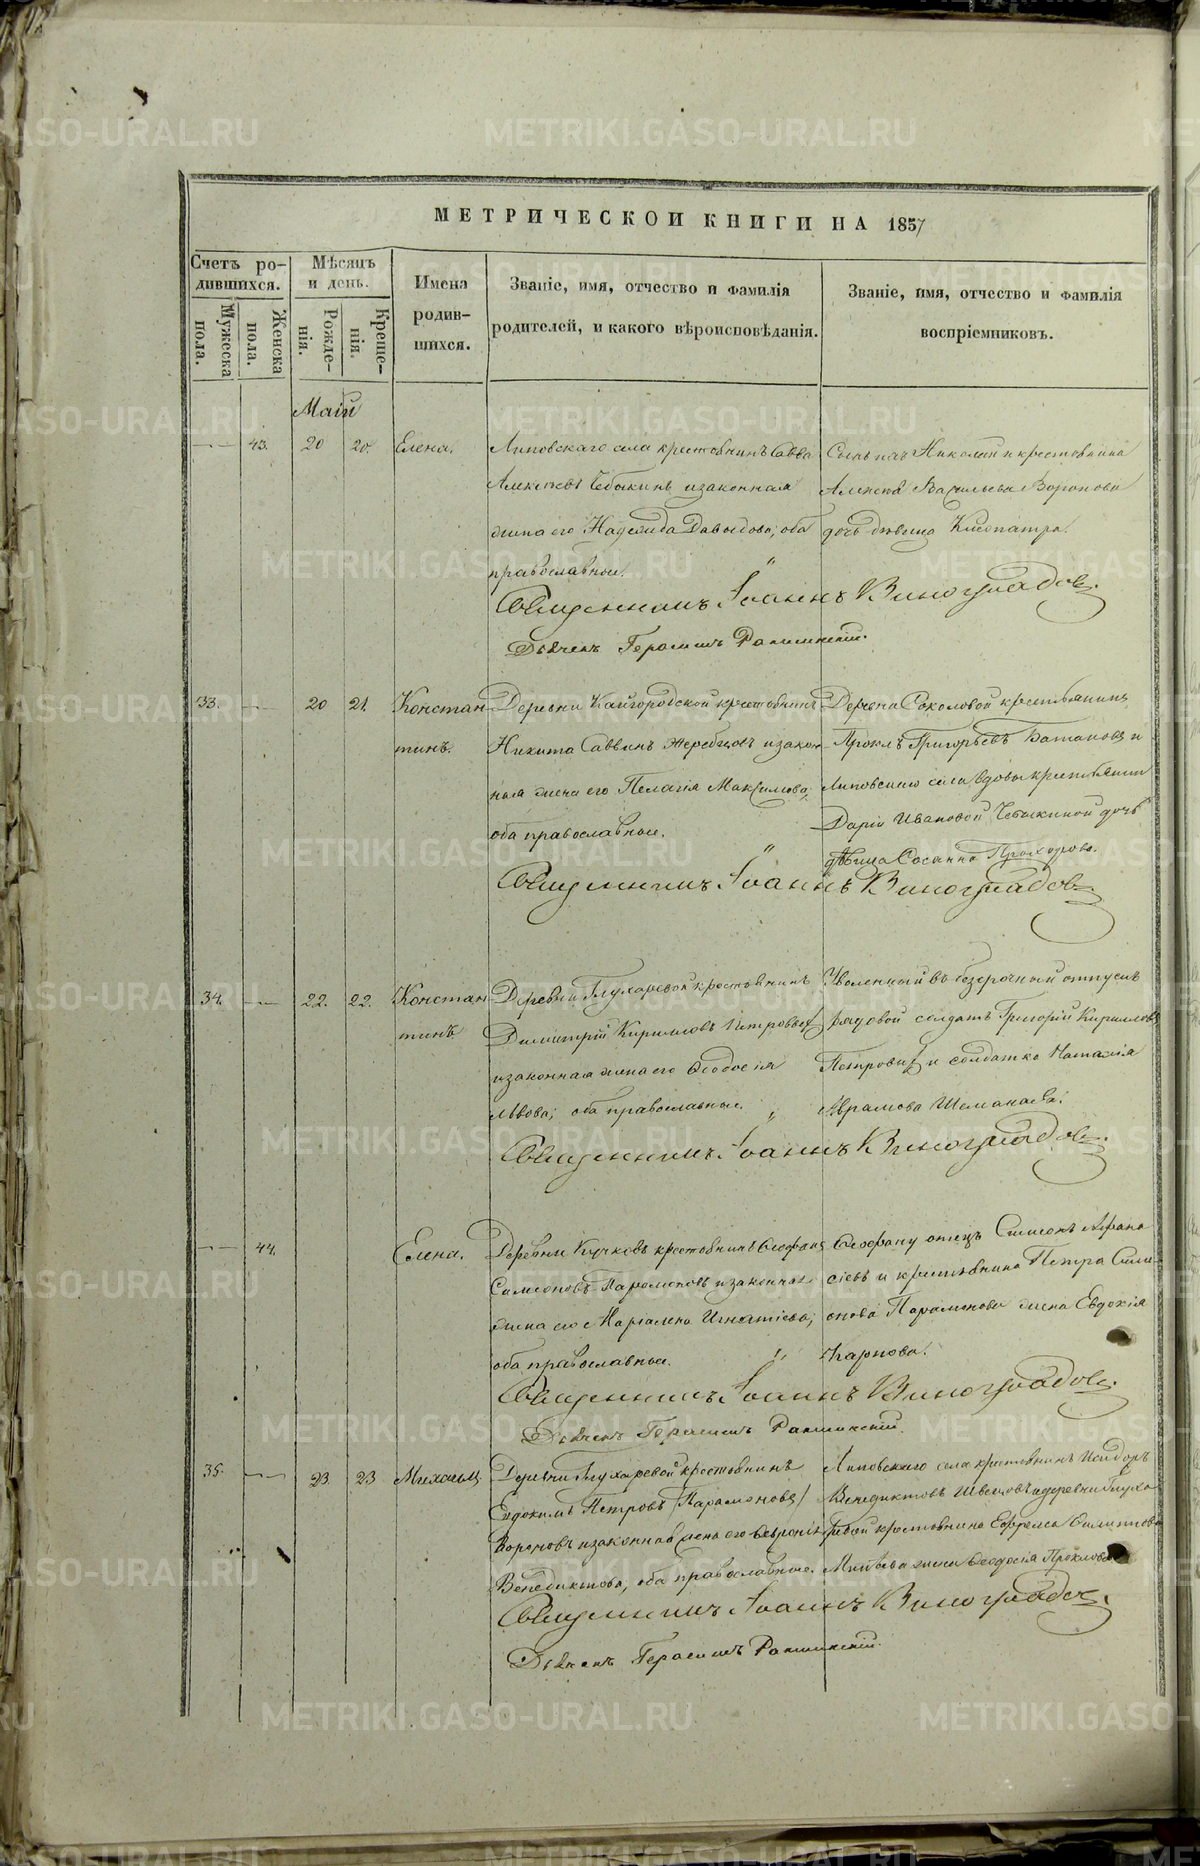 МЕТРИЧЕСКОЙ КНИГИ НА 1857
Счетъ ро-
дившихся.
Мѣсяцъ
и день.
Имена
родив-
шихся.
Званіе, имя, отчество и фамилія
родителей, и какого вѣроисповѣданія.
Званіе, имя, отчество и фамилія
воспріемниковъ.
Мужеска
пола.
Женска
пола.
Рожде-
нія.
Креще-
нія.
Маій
43. 20 20. Елена.
Липовскаго села крестьянинъ Савва
Алексѣевъ Чебыкинъ и законная
жена его Надежда Давыдова, оба
православные.
Сынъ Николай и крестьянина
Алексѣя Васильева Воронова
дочь дѣвица Клеопатра.
Священникъ Іоаннъ Виноградовъ.
Дьячекъ Герасимъ
33. 20 21. Констан
тинъ.
Деревни Кайгородской крестьянинъ
Никита Саввинъ Жеребцовъ и закон
ная жена его Пелагія Максимова,
оба православные.
Деревни Соколовой крестьянинъ
Проклъ Григорьевъ и
Липовскаго села вдовы крестьянки
Дарьи Ивановой Чебыкиной дочь
дѣвица Сосанна Прохорова.
Священникъ Іоаннъ Виноградовъ
34. 22. 22. Констан
тинъ
Деревни Глухаревой крестьянинъ
Димитрій Кириловъ Петровыхъ
и законная жена его Ѳеодосія
Львова; оба православные.
Уволенный въ безсрочный отпускъ
рядовой солдатъ Григорій Кирилловъ
Петровыхъ и солдатка Наталія
Аврамова
Священникъ Іоаннъ Виноградовъ.
44. Елена.
Деревни крестьянинъ Ѳеофанъ
Симеоновъ Парамоновъ и законная
жена его Игнатіева;
оба православные.
Ѳеофану отецъ Симеонъ Афана
сіевъ и крестьянина Петра Симе
онова Парамонова жена Евдокія
Карпова.
Священникъ Іоаннъ Виноградовъ.
Дьячекъ Герасимъ
35. 23 23 Михаилъ
Деревни Глухаревой крестьянинъ
Евдокимъ Петровъ /Парамоновъ/
Вороновъ и законная жена его Ѳевронія
Венедиктова, оба православные.
Липовскаго села крестьянинъ Исидоръ
Венедиктовъ Швецовъ и деревни Глуха
ревой крестьянина Ефрема Филиппова
жена Ѳеодосія Проклова
Священникъ Іоаннъ Виноградовъ.
Дьячекъ Герасимъ
METRIKI.GASO-URAL.RU